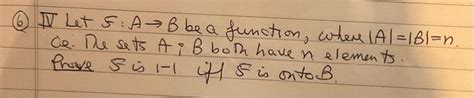 ⑥ IV Let f: A → B be a function, where |A|=|B|=n.
i.e. The sets A & B both have n elements.
Prove f is 1-1 iff f is onto B.